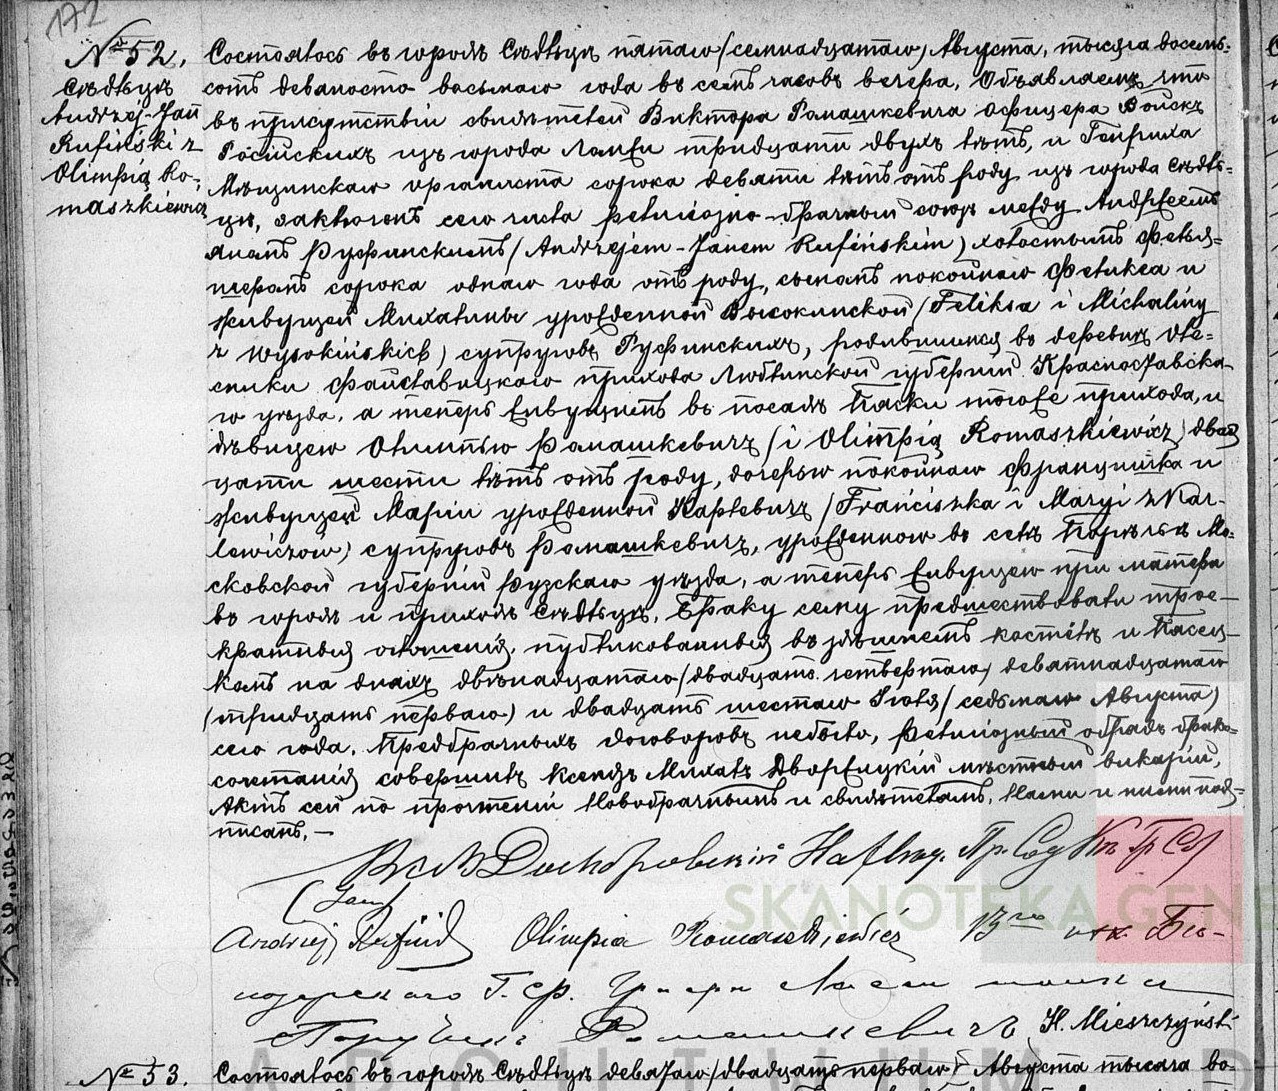 172
№ 52.
Сѣдльцѣ
Andrzej-Jan
Rufiński z
Olimpią Ro-
maszkiewicz
Состоялось въ городѣ Сѣдльцѣ пятаго /семнадцатаго/ Августа, тысяча восемь-
сотъ девяносто восьмаго года въ семь часовъ вечера. Объявляемъ что
въ присутствіи свидѣтелей Виктора Ромашкевича офицера Войскъ
Россійскихъ изъ города Ломжи тридцати двухъ лѣтъ, и Генриха
Мѣщинскаго органиста сорока девяти лѣтъ отъ роду изъ города Сѣдль-
цы, заключенъ сего числа религіозно-брачный союзъ между Андржеемъ
Яномъ Руфинскимъ /Andrzejem-Janem Rufińskim/ холостымъ фельд-
шеромъ сорока одного года отъ роду, сыномъ покойнаго Феликса и
живущей Михалины урожденной Высокинской /Feliksa i Michaliny
z Wysokińskich/ супруговъ Руфинскихъ, родившимся въ деревнѣ Оле-
сники Файславицкаго прихода Люблинской губерніи Красноставска-
го уѣзда, а теперь живущимъ въ посадѣ Пяски тогоже прихода, и
дѣвицею Олимпіею Ромашкевичъ /i Olimpią Romaszkiewicz/ двад-
цати шести лѣтъ отъ роду, дочерью покойнаго Францишка и
живущей Маріи урожденной Карлевичъ /Franciszka i Maryi z Kar-
lewiczów/ супруговъ Ромашкевичъ, урожденною въ селѣ Порѣчьѣ Мо-
сковской губерніи Рузскаго уѣзда, а теперь живущею при матери
въ городѣ и приходѣ Сѣдльцѣ. Браку сему предшествовали трое-
кратныя оглашенія, публикованныя въ здѣшнемъ костелѣ и Пасец-
комъ на дняхъ двѣнадцатаго /двадцать четвертаго/ девятнадцатаго
/тридцать перваго/ и двадцать шестаго Іюля /седьмаго Августа/
сего года. Предбрачныхъ договоровъ небыло, религіозный обрядъ брако-
сочетанія совершилъ Ксендзъ Михалъ Дворжицкій мѣстный викарій,
Актъ сей по прочтеніи Новобрачнымъ и свидѣтелямъ, Нами и ними под-
писанъ. —
Andrzej Jan Rufiński Olimpia Romaszkiewicz 13го
полка
Поручикъ Ромашкевичъ H. Mieszczyński
SKANOTEKA GENE
№ 53.
Состоялось въ городѣ Сѣдльцѣ девятаго /двадцать перваго/ Августа тысяча во-